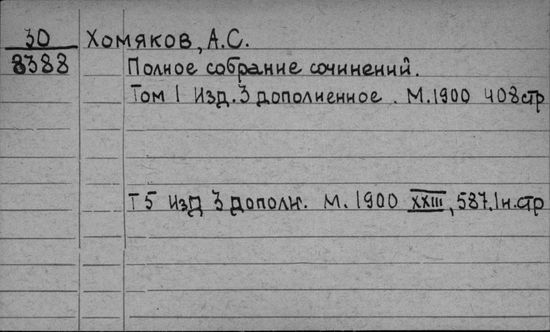 30 Хомяков, А.С.
8388 Полное собрание сочинений.
Том 1 Изд. 3 дополненное. М. 1900 408 стр
Т 5 Изд 3 дополн. М. 1900 XXIII, 587, 1 н. стр